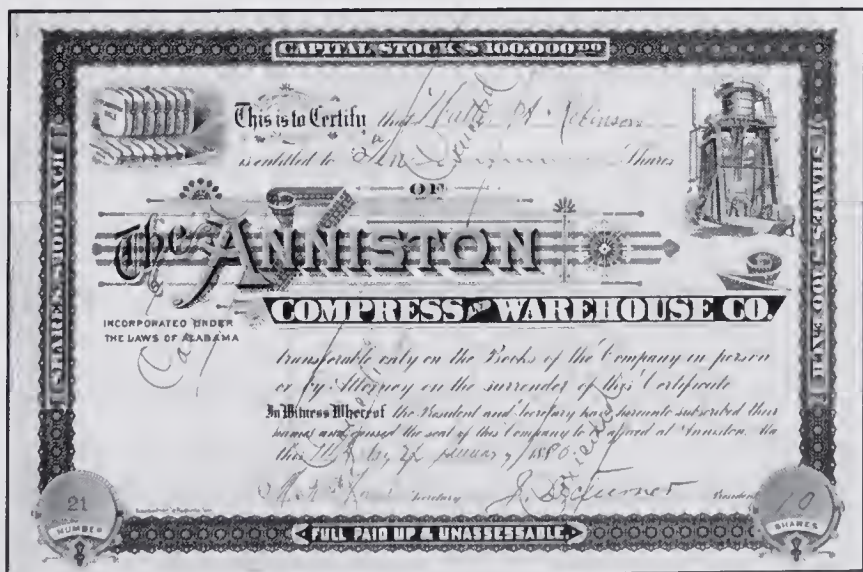 CAPITAL STOCK $ 100,000 00
This is to Certify that
is entitled to Shares
OF
The ANNISTON
COMPRESS AND WAREHOUSE CO.
INCORPORATED UNDER
THE LAWS OF ALABAMA
transferable only on the Books of the Company in person
or by Attorney on the surrender of this Certificate
In Witness Whereof the President and Secretary have hereunto subscribed their
names and caused the seal of this Company to be affixed at Anniston, Ala
this day of January
Secretary President
21
NUMBER
10
SHARES
FULL PAID UP & UNASSESSABLE
SHARES $100 EACH
SHARES $100 EACH